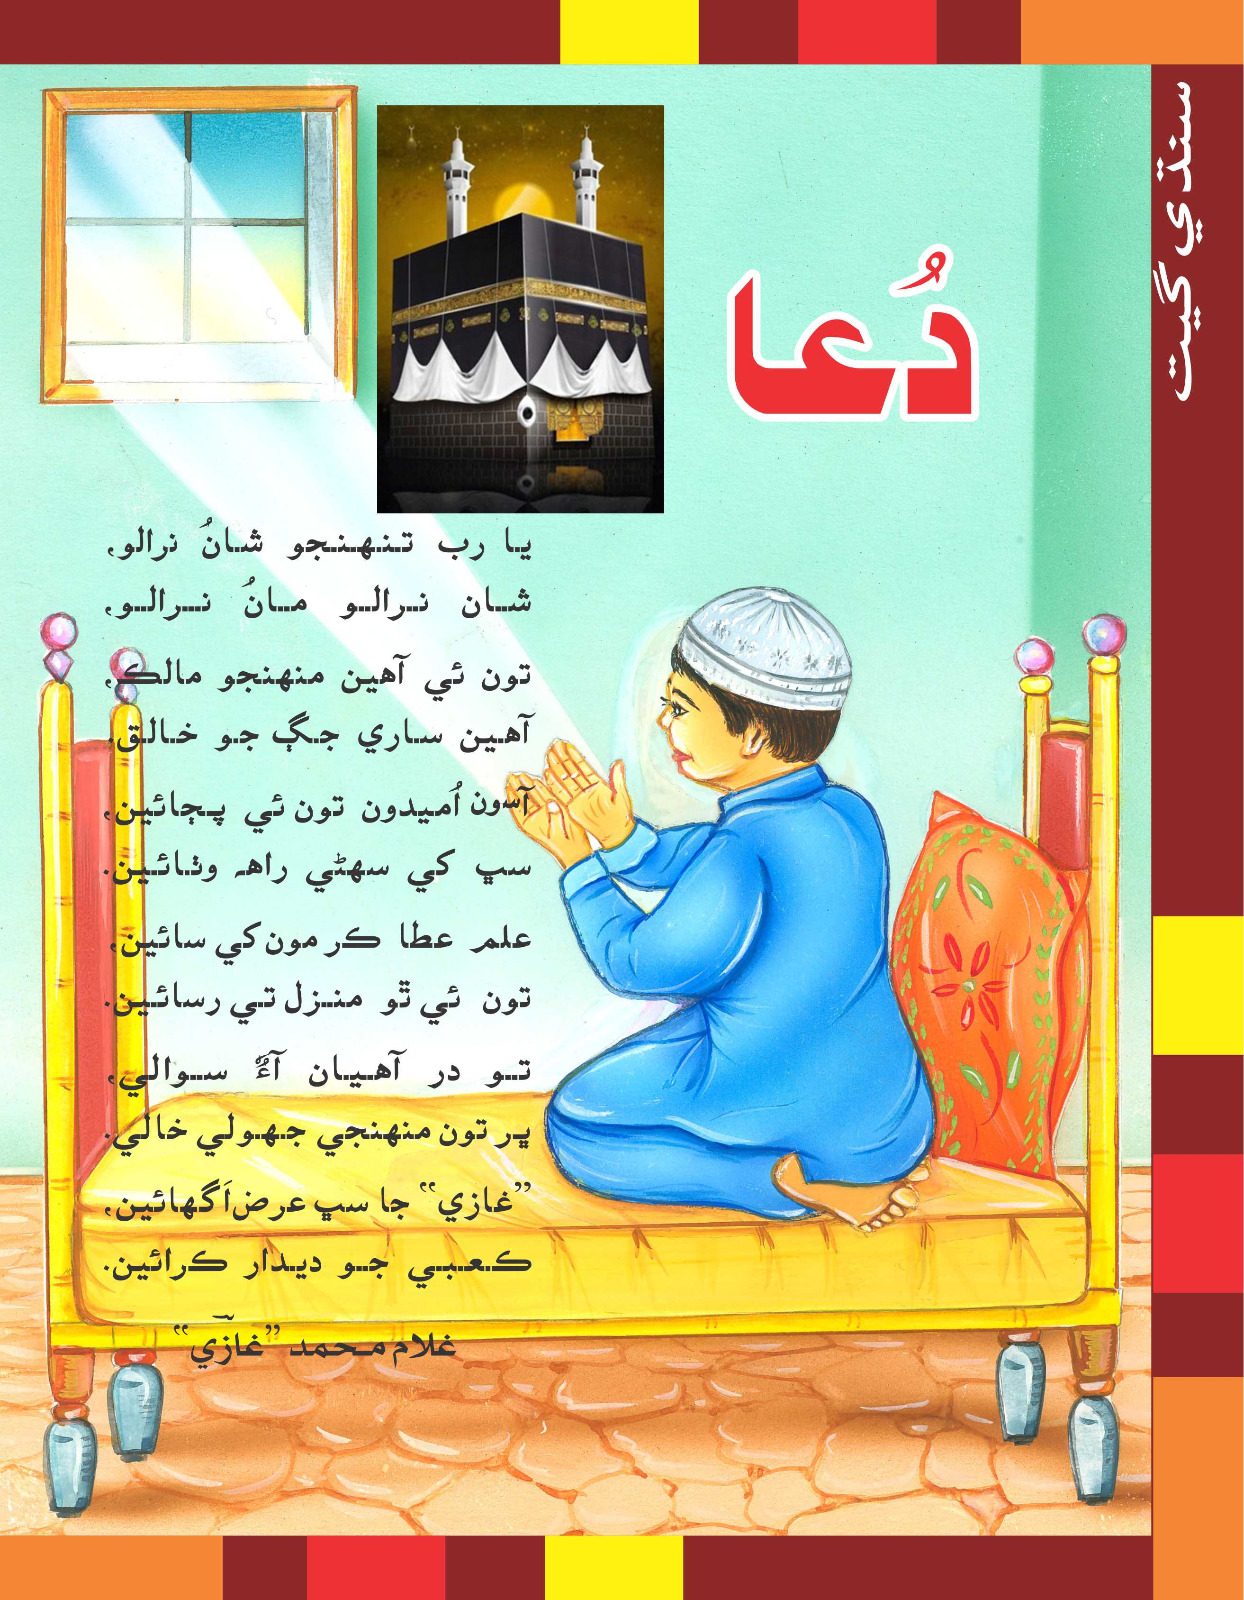 سنڌي گيت
دُعا
يا رب تنهنجو شانُ نرالو،
شان نرالو مانُ نرالو،
تون ئي آهين منهنجو مالڪ،
آهين ساري جڳ جو خالق.
آسون اُميدون تون ئي پڄائين،
سڀ کي سهڻي راهہ وٺائين.
علم عطا ڪر مون کي سائين،
تون ئي ٿو منزل تي رسائين.
تو در آهيان آءٌ سوالي،
ڀر تون منهنجي جھولي خالي.
”غازي“ جا سڀ عرض اَگهائين،
ڪعبي جو ديدار ڪرائين.
غلام محمد ”غازي“